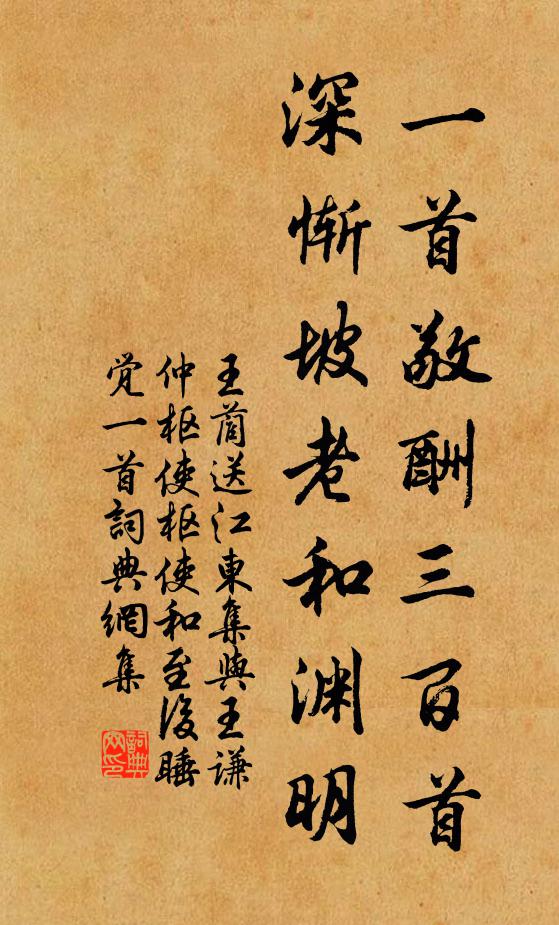 一首敬酬三百首
深慚坡老和渊明
王蔺送江東集與王谦
仲枢使枢使和至後睡
觉一首詞典網集
詞典網印